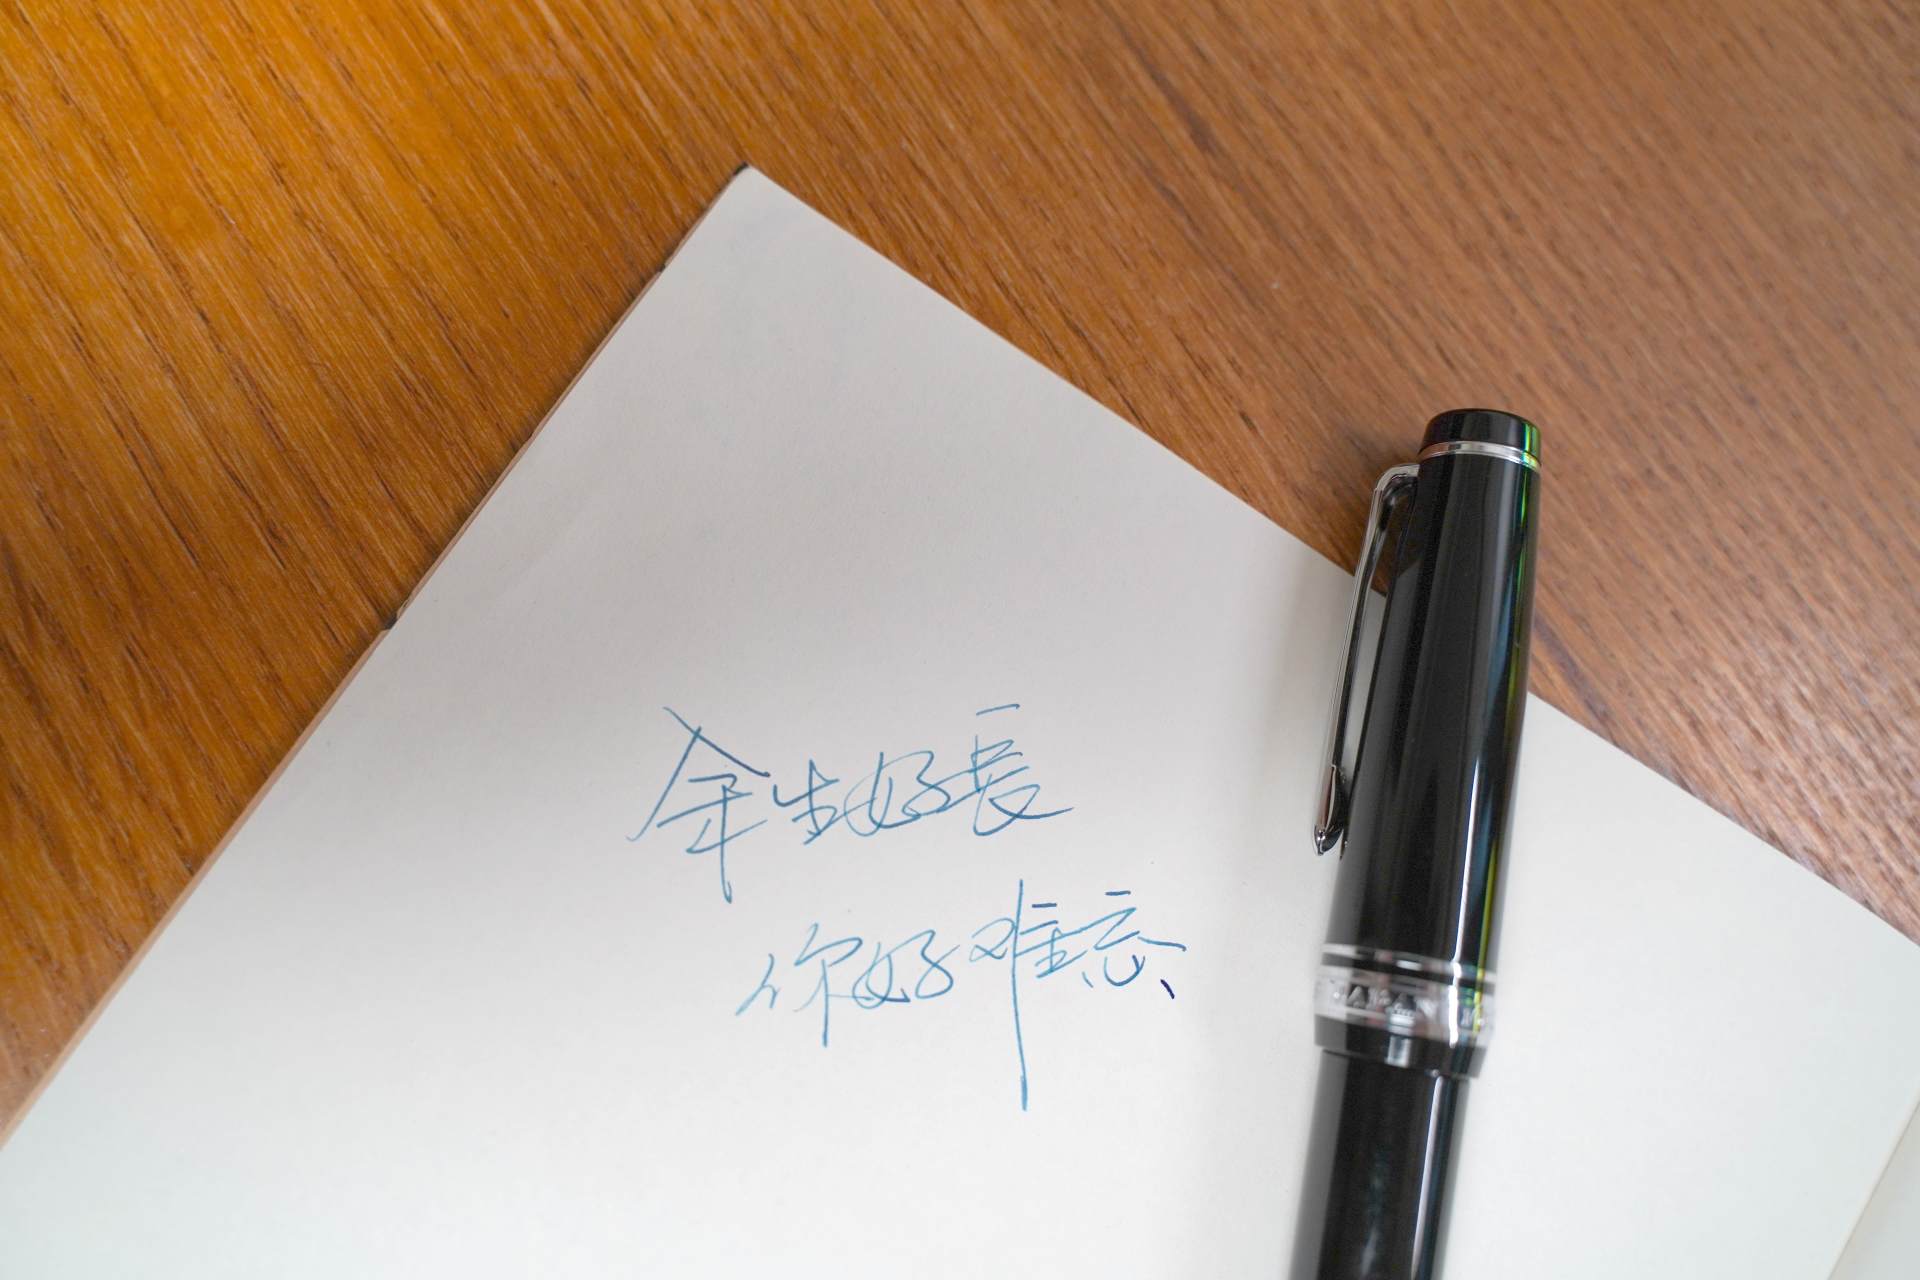 余生好長
你好难忘